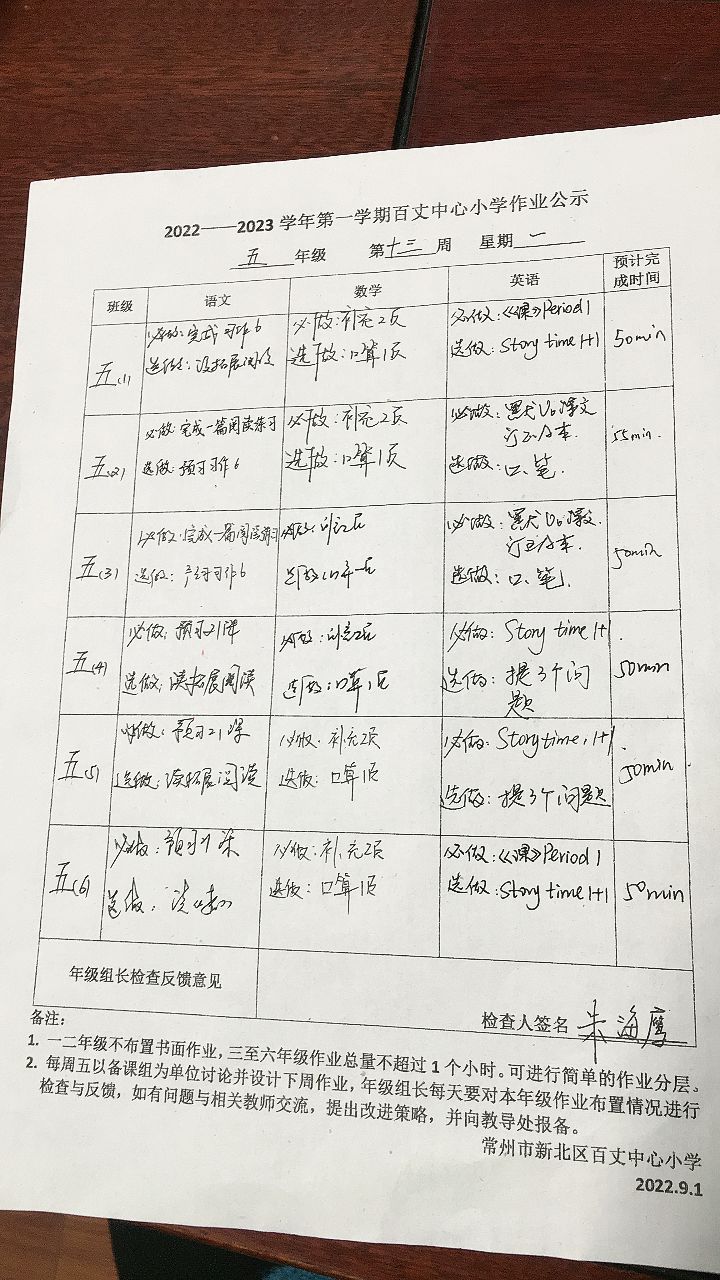 2022——2023 学年第一学期百丈中心小学作业公示
五 年级 第 十三 周 星期 一
班级 语文 数学 英语 预计完成时间
五(1)
必做: 完成习作6
选做: 读拓展阅读
必做: 补充2页
选做: 口算1页
必做: 《课》Period 1
选做: Story time 1+1
50min
五(2)
必做: 完成一篇阅读练习
选做: 预习习作6
必做: 补充2页
选做: 口算1页
必做: 默大U6课文
订正本
选做: 口、笔.
55min.
五(3)
必做: 完成一篇阅读练习
选做: 预习习作6
必做: 补充2页
选做: 口算一页
必做: 默大U6课文.
订正本.
选做: 口、笔
50min
五(4)
必做: 预习21课
选做: 读拓展阅读
必做: 补充2页
选做: 口算1页
必做: Story time 1+1
选做: 提3个问
题
50min
五(5)
必做: 预习21课
选做: 读拓展阅读
必做: 补充2页
选做: 口算1页
必做: Story time, 1+1
选做: 提3个问题
50min
五(6)
必做: 预习21课
选做: 读
必做: 补充2页
选做: 口算1页
必做: 《课》Period 1
选做: Story time 1+1
50min
年级组长检查反馈意见
检查人签名 朱海鹰
备注:
1. 一二年级不布置书面作业，三至六年级作业总量不超过 1 个小时。可进行简单的作业分层。
2. 每周五以备课组为单位讨论并设计下周作业，年级组长每天要对本年级作业布置情况进行
检查与反馈，如有问题与相关教师交流，提出改进策略，并向教导处报备。
常州市新北区百丈中心小学
2022.9.1